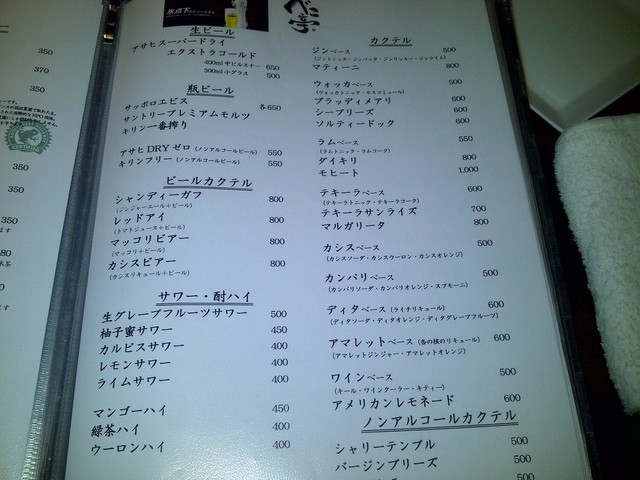 350
370
350
350
350
350
べに亭
生ビール
アサヒスーパードライ
エクストラコールド
400ml 中ピルスナー 650
300ml 小グラス 500
瓶ビール
サッポロエビス
サントリープレミアムモルツ 各650
キリン一番搾り
アサヒDRYゼロ(ノンアルコールビール) 550
キリンフリー(ノンアルコールビール) 550
ビールカクテル
シャンディーガフ 800
(ジンジャーエール+ビール)
レッドアイ 800
(トマトジュース+ビール)
マッコリビアー 800
(マッコリ+ビール)
カシスビアー 800
(カシスリキュール+ビール)
サワー・酎ハイ
生グレープフルーツサワー 500
柚子蜜サワー 450
カルピスサワー 400
レモンサワー 400
ライムサワー 400
マンゴーハイ 450
緑茶ハイ 400
ウーロンハイ 400
カクテル
ジンベース 500
(ジントニック・ジンバック・ジンリッキー・ジンライム)
マティーニ 800
ウォッカベース 500
(ウォッカトニック・モスコミュール)
ブラッディメアリ 600
シーブリーズ 600
ソルティードック 600
ラムベース 550
(ラムトニック・ラムコーク)
ダイキリ 800
モヒート 1,000
テキーラベース 600
(テキーラトニック・テキーラコーク)
テキーラサンライズ 700
マルガリータ 800
カシスベース 500
(カシスソーダ・カシスウーロン・カシスオレンジ)
カンパリベース 500
(カンパリソーダ・カンパリオレンジ・スプモーニ)
ディタベース(ライチリキュール) 600
(ディタソーダ・ディタオレンジ・ディタグレープフルーツ)
アマレットベース(杏の核のリキュール) 600
(アマレットジンジャー・アマレットオレンジ)
ワインベース 500
(キール・ワインクーラー・キティー)
アメリカンレモネード 600
ノンアルコールカクテル
シャリーテンプル 500
バージンブリーズ 500
500